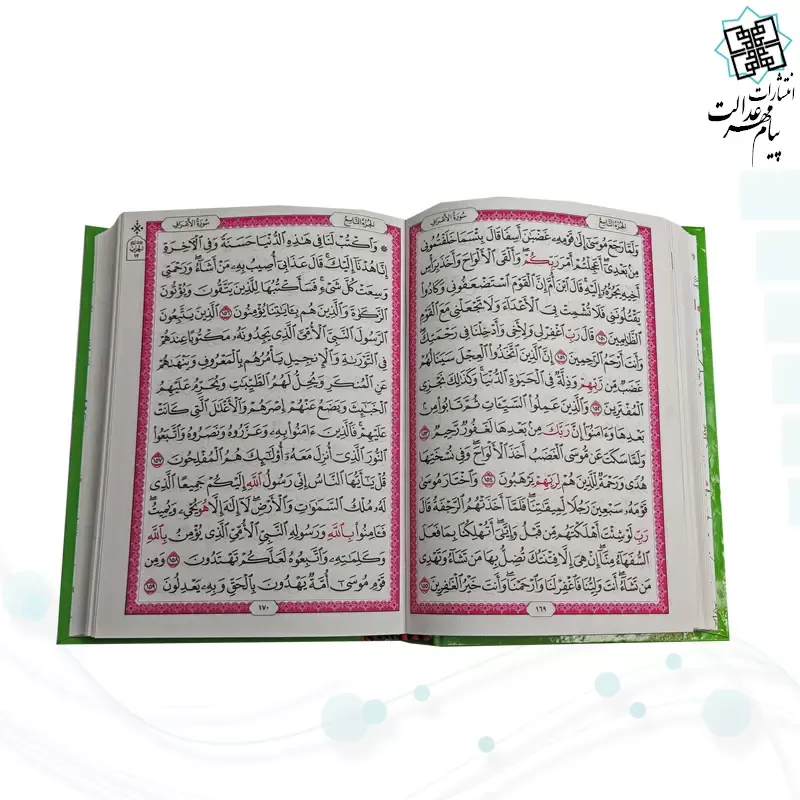 انتشارات
پیام مهر عدالت
الجزء التاسع
سورة الأعراف
وَلَمَّا رَجَعَ مُوسَىٰٓ إِلَىٰ قَوْمِهِۦ غَضْبَٰنَ أَسِفًا قَالَ بِئْسَمَا خَلَفْتُمُونِي
مِنۢ بَعْدِيٓ أَعَجِلْتُمْ أَمْرَ رَبِّكُمْ وَأَلْقَى ٱلْأَلْوَاحَ وَأَخَذَ بِرَأْسِ
أَخِيهِ يَجُرُّهُۥٓ إِلَيْهِ قَالَ ٱبْنَ أُمَّ إِنَّ ٱلْقَوْمَ ٱسْتَضْعَفُونِي وَكَادُوا۟
يَقْتُلُونَنِي فَلَا تُشْمِتْ بِيَ ٱلْأَعْدَآءَ وَلَا تَجْعَلْنِي مَعَ ٱلْقَوْمِ
ٱلظَّٰلِمِينَ ١٥٠ قَالَ رَبِّ ٱغْفِرْ لِي وَلِأَخِي وَأَدْخِلْنَا فِي رَحْمَتِكَ
وَأَنتَ أَرْحَمُ ٱلرَّٰحِمِينَ ١٥١ إِنَّ ٱلَّذِينَ ٱتَّخَذُوا۟ ٱلْعِجْلَ سَيَنَالُهُمْ
غَضَبٌ مِّن رَّبِّهِمْ وَذِلَّةٌ فِي ٱلْحَيَوٰةِ ٱلدُّنْيَا وَكَذَٰلِكَ نَجْزِي
ٱلْمُفْتَرِينَ ١٥٢ وَٱلَّذِينَ عَمِلُوا۟ ٱلسَّيِّـَٔاتِ ثُمَّ تَابُوا۟ مِنۢ
بَعْدِهَا وَءَامَنُوٓا۟ إِنَّ رَبَّكَ مِنۢ بَعْدِهَا لَغَفُورٌ رَّحِيمٌ ١٥٣
وَلَمَّا سَكَتَ عَن مُّوسَى ٱلْغَضَبُ أَخَذَ ٱلْأَلْوَاحَ وَفِي نُسْخَتِهَا
هُدًى وَرَحْمَةٌ لِّلَّذِينَ هُمْ لِرَبِّهِمْ يَرْهَبُونَ ١٥٤ وَٱخْتَارَ مُوسَىٰ
قَوْمَهُۥ سَبْعِينَ رَجُلًا لِّمِيقَٰتِنَا فَلَمَّآ أَخَذَتْهُمُ ٱلرَّجْفَةُ قَالَ
رَبِّ لَوْ شِئْتَ أَهْلَكْتَهُم مِّن قَبْلُ وَإِيَّٰيَ أَتُهْلِكُنَا بِمَا فَعَلَ
ٱلسُّفَهَآءُ مِنَّآ إِنْ هِيَ إِلَّا فِتْنَتُكَ تُضِلُّ بِهَا مَن تَشَآءُ وَتَهْدِي
مَن تَشَآءُ أَنتَ وَلِيُّنَا فَٱغْفِرْ لَنَا وَٱرْحَمْنَا وَأَنتَ خَيْرُ ٱلْغَٰفِرِينَ ١٥٥
١٦٩
الجزء التاسع
سورة الأعراف
وَٱكْتُبْ لَنَا فِي هَٰذِهِ ٱلدُّنْيَا حَسَنَةً وَفِي ٱلْءَاخِرَةِ
إِنَّا هُدْنَآ إِلَيْكَ قَالَ عَذَابِيٓ أُصِيبُ بِهِۦ مَنْ أَشَآءُ وَرَحْمَتِي
وَسِعَتْ كُلَّ شَيْءٍ فَسَأَكْتُبُهَا لِلَّذِينَ يَتَّقُونَ وَيُؤْتُونَ
ٱلزَّكَوٰةَ وَٱلَّذِينَ هُم بِـَٔايَٰتِنَا يُؤْمِنُونَ ١٥٦ ٱلَّذِينَ يَتَّبِعُونَ
ٱلرَّسُولَ ٱلنَّبِيَّ ٱلْأُمِّيَّ ٱلَّذِي يَجِدُونَهُۥ مَكْتُوبًا عِندَهُمْ
فِي ٱلتَّوْرَىٰةِ وَٱلْإِنجِيلِ يَأْمُرُهُم بِٱلْمَعْرُوفِ وَيَنْهَىٰهُمْ
عَنِ ٱلْمُنكَرِ وَيُحِلُّ لَهُمُ ٱلطَّيِّبَٰتِ وَيُحَرِّمُ عَلَيْهِمُ
ٱلْخَبَٰٓئِثَ وَيَضَعُ عَنْهُمْ إِصْرَهُمْ وَٱلْأَغْلَٰلَ ٱلَّتِي كَانَتْ
عَلَيْهِمْ فَٱلَّذِينَ ءَامَنُوا۟ بِهِۦ وَعَزَّرُوهُ وَنَصَرُوهُ وَٱتَّبَعُوا۟
ٱلنُّورَ ٱلَّذِيٓ أُنزِلَ مَعَهُۥٓ أُو۟لَٰٓئِكَ هُمُ ٱلْمُفْلِحُونَ ١٥٧
قُلْ يَٰٓأَيُّهَا ٱلنَّاسُ إِنِّي رَسُولُ ٱللَّهِ إِلَيْكُمْ جَمِيعًا ٱلَّذِي
لَهُۥ مُلْكُ ٱلسَّمَٰوَٰتِ وَٱلْأَرْضِ لَآ إِلَٰهَ إِلَّا هُوَ يُحْيِۦ وَيُمِيتُ
فَـَٔامِنُوا۟ بِٱللَّهِ وَرَسُولِهِ ٱلنَّبِيِّ ٱلْأُمِّيِّ ٱلَّذِي يُؤْمِنُ بِٱللَّهِ
وَكَلِمَٰتِهِۦ وَٱتَّبِعُوهُ لَعَلَّكُمْ تَهْتَدُونَ ١٥٨ وَمِن
قَوْمِ مُوسَىٰٓ أُمَّةٌ يَهْدُونَ بِٱلْحَقِّ وَبِهِۦ يَعْدِلُونَ ١٥٩
١٧٠